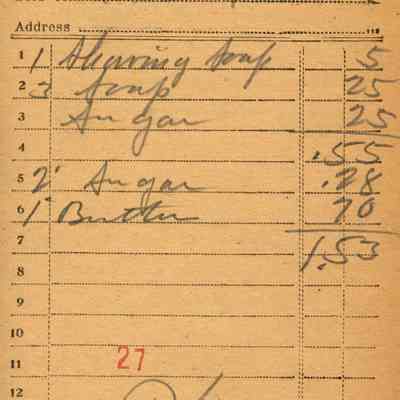 Address
1 1 Shaving Soap 5
2 3 Soap 25
3 Sugar 25
4 .55
5 2 Sugar .28
6 1 Butter 70
7 1.53
8
9
10
11 27
12